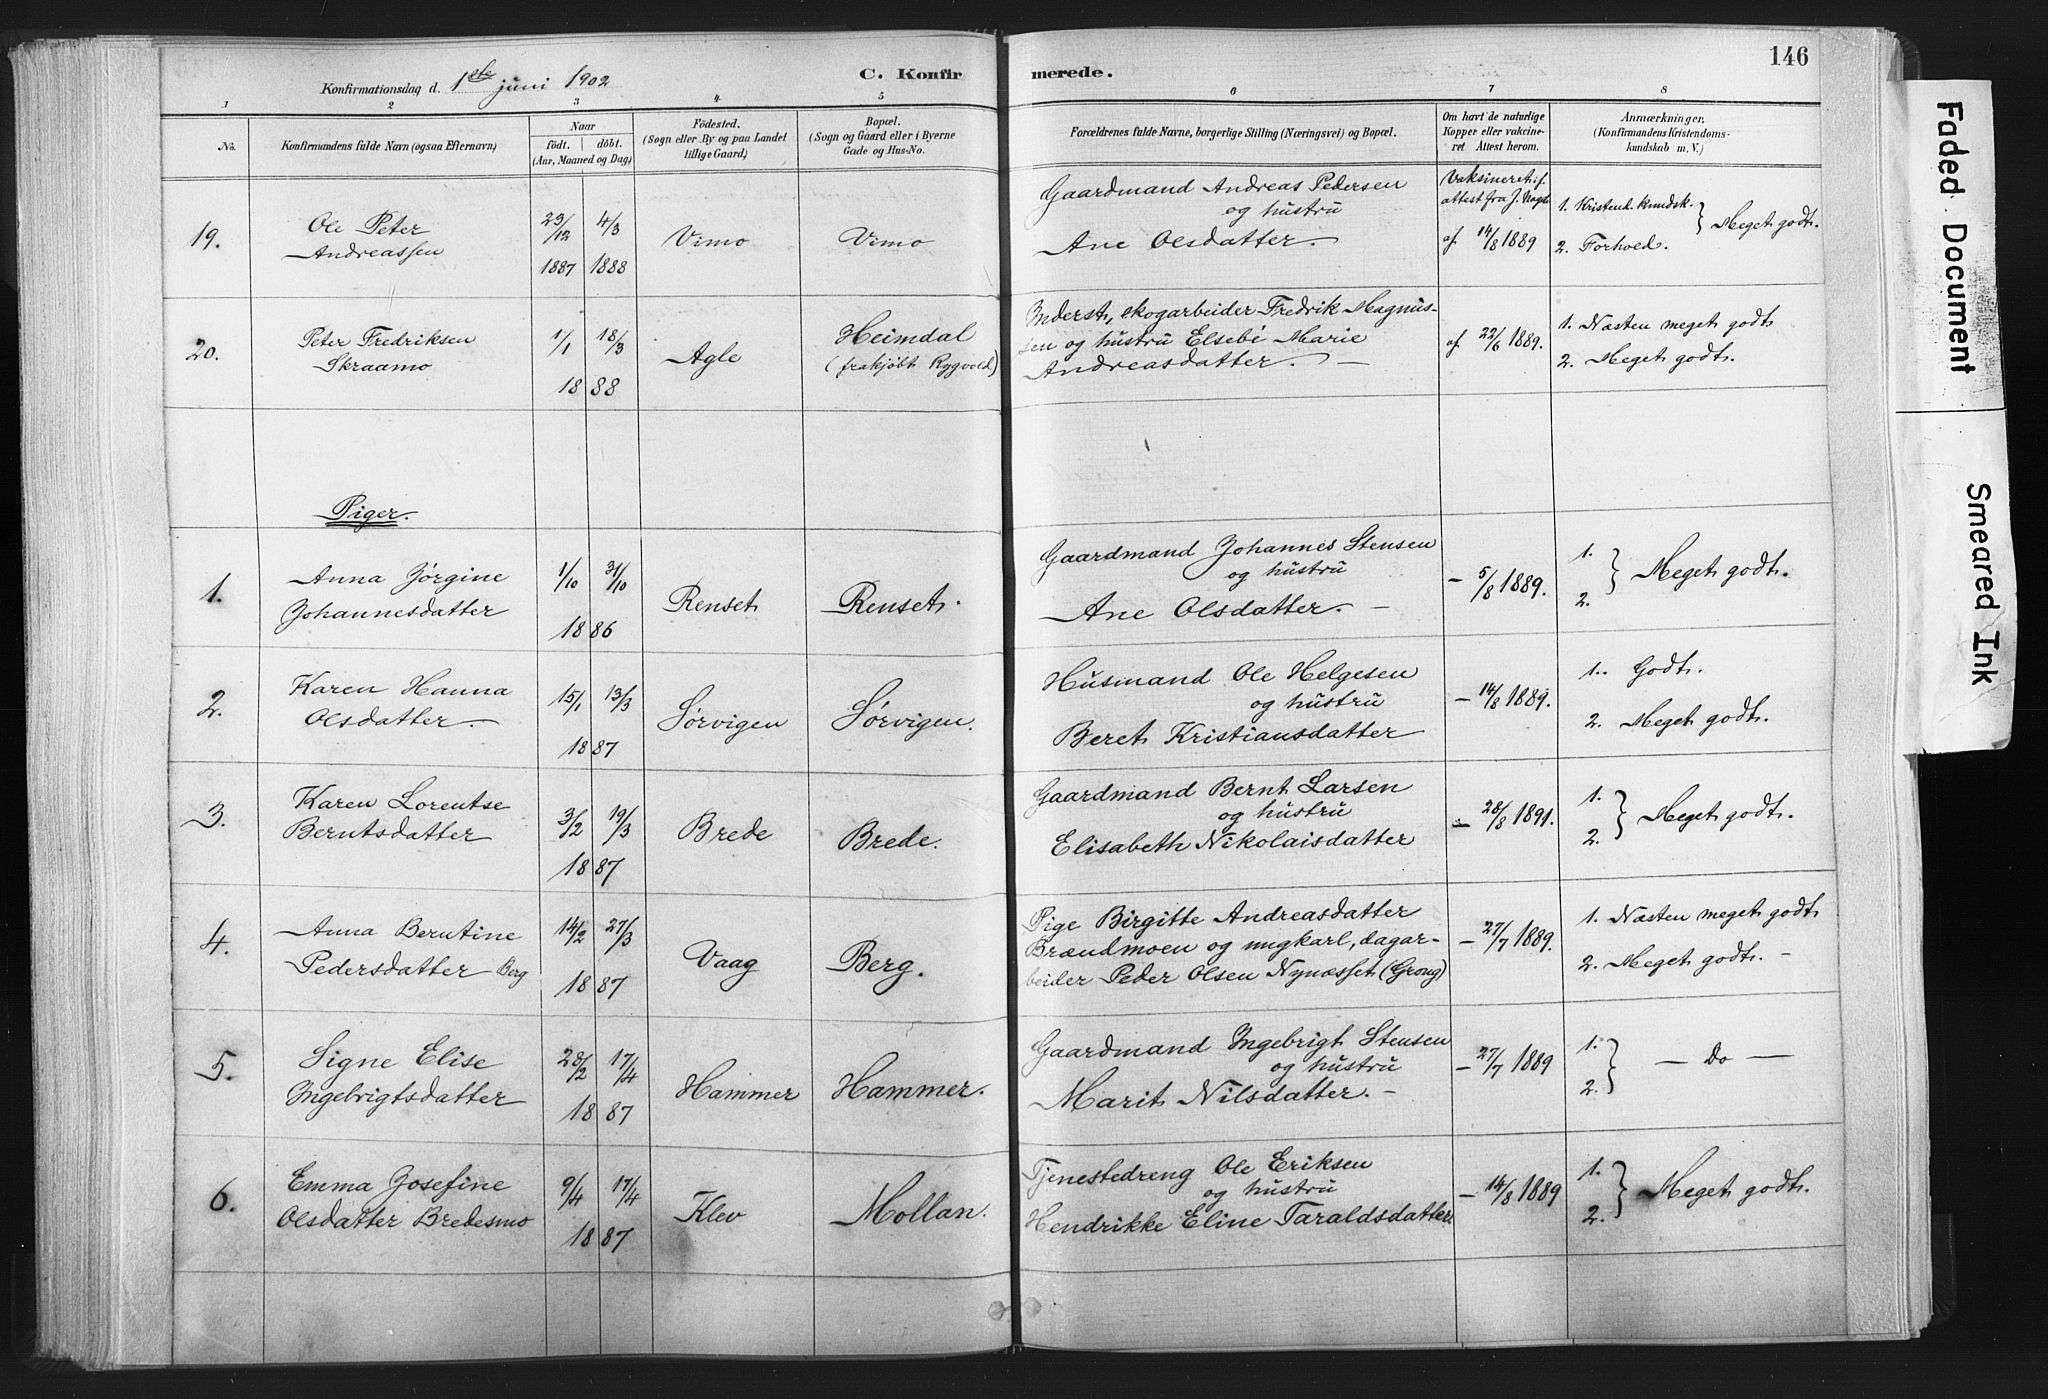 146
Konfirmationsdag d. 1ste juni 1902
C. Konfirmerede.
1 2 3 4 5 6 7 8
No.
Konfirmandens fulde Navn (ogsaa Efternavn)
Naar
födt. döbt.
(Aar, Maaned og Dag)
Födested.
(Sogn eller By og paa Landet
tillige Gaard)
Bopæl.
(Sogn og Gaard eller i Byerne
Gade og Hus-No.
Forældrenes fulde Navne, borgerlige Stilling (Næringsvei) og Bopæl.
Om havt de naturlige
Kopper eller vakcine-
ret. Attest herom.
Anmærkninger,
(Konfirmandens Kristendoms-
kundskab m. V.)
19.
Ole Peter
Andreassen
23/12 4/3
1887 1888
Vimo
Vimo
Gaardmand Andreas Pedersen
og hustru
Ane Olsdatter.
Vaksineret if.
attest fra J.
af 14/8 1889
1. Kristend. kundsk.
2. Forhold.
} Meget godt.
20.
Peter Fredriksen
Skraamo
1/1 18/3
18 88
Agle
Heimdal
(frakjøbt Rygvold)
Inderst, skogarbeider Fredrik Magnus-
sen og hustru Elsebe Marie
Andreasdatter. —
af 22/6 1889.
1. Næsten meget godt
2. Meget godt.
Piger.
1.
Anna Jørgine
Johannesdatter
1/10 31/10
18 86
Renset
Renset.
Gaardmand Johannes Stensen
og hustru
Ane Olsdatter. —
— 5/8 1889.
1.
2.
} Meget godt.
2.
Karen Hanna
Olsdatter. —
15/1 13/3
18 87
Sørvigen
Sørvigen.
Husmand Ole Helgesen
og hustru
Beret Kristiansdatter
— 14/8 1889.
1. Godt.
2. Meget godt.
3.
Karen Lorentse
Berntsdatter
3/2 19/3
18 87
Brede
Brede.
Gaardmand Bernt Larsen
og hustru
Elisabeth Nikolaisdatter
— 28/8 1891.
1.
2.
} Meget godt.
4.
Anna Berntine
Pedersdatter Berg
14/2 27/3
18 87
Vaag
Berg.
Pige Birgitte Andreasdatter
Brændmoen og ungkarl, dagar-
beider Peder Olsen Nynæsset (Grong)
— 27/7 1889.
1. Næsten meget godt
2. Meget godt. —
5.
Signe Elise
Ingebrigtsdatter
28/2 17/4
18 87
Hammer
Hammer.
Gaardmand Ingebrigt Stensen
og hustru
Marit Nilsdatter. —
— 27/7 1889
1.
2.
} — Do —
6.
Emma Josefine
Olsdatter Bredesmo
9/4 17/4
18 87
Klev
Mollan.
Tjenestedreng Ole Eriksen
og hustru
Hendrikke Eline Taraldsdatter.
— 14/8 1889
1.
2.
} Meget godt.
Faded Document
Smeared Ink